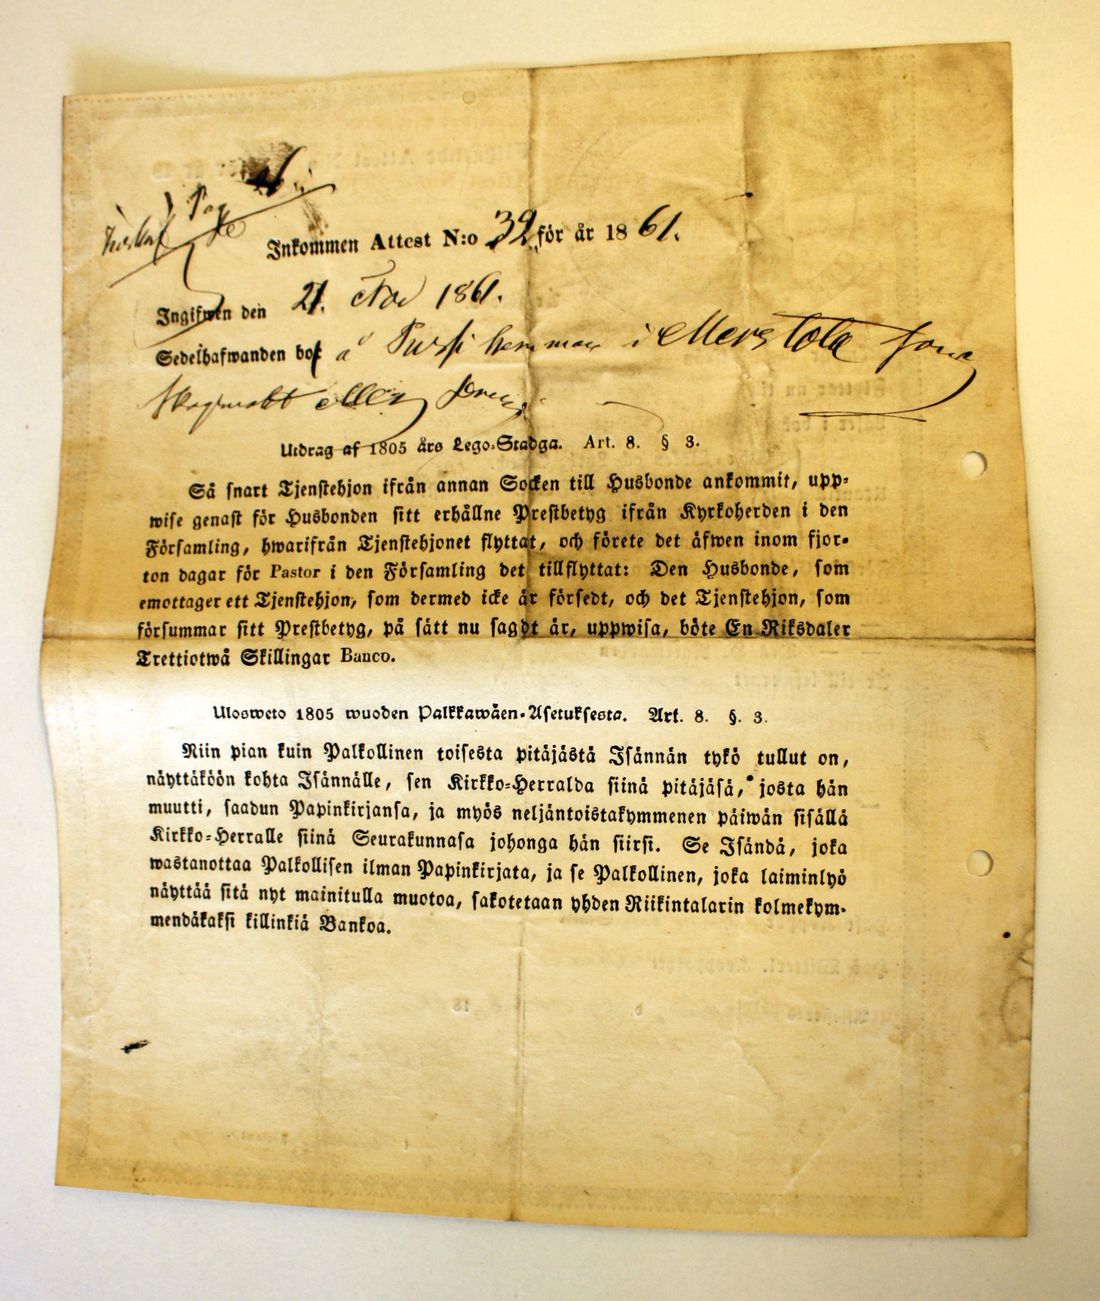 Inkommen Attest N:o 32 för år 1861.
Ingifwen den 21. Nov 1861.
Sedelhafwanden bor å hemman i
Utdrag af 1805 års Lego-Stadga. Art. 8. § 3.
Så snart Tjenstehjon ifrån annan Socken till Husbonde ankommit, upp-
wise genast för Husbonden sitt erhållne Prestbetyg ifrån Kyrkoherden i den
Församling, hwarifrån Tjenstehjonet flyttat, och förete det äfwen inom fjor-
ton dagar för Pastor i den Församling det tillflyttat: Den Husbonde, som
emottager ett Tjenstehjon, som dermed icke är försedt, och det Tjenstehjon, som
försummar sitt Prestbetyg, på sätt nu sagdt är, uppwisa, böte En Riksdaler
Trettiotwå Skillingar Banco.
Ulosweto 1805 wuoden Palkkawäen-Asetuksesta. Art. 8. §. 3.
Niin pian kuin Palkollinen toisesta pitäjästä Isännän tykö tullut on,
näyttäköön kohta Isännälle, sen Kirkko-Herralda siinä pitäjäsä, josta hän
muutti, saadun Papinkirjansa, ja myös neljäntoistakymmenen päiwän sisällä
Kirkko-Herralle siinä Seurakunnasa johonga hän siirsi. Se Isändä, joka
wastanottaa Palkollisen ilman Papinkirjata, ja se Palkollinen, joka laiminlyö
näyttää sitä nyt mainitulla muotoa, sakotetaan yhden Riikintalarin kolmekym-
mendäkaksi killinkiä Bankoa.